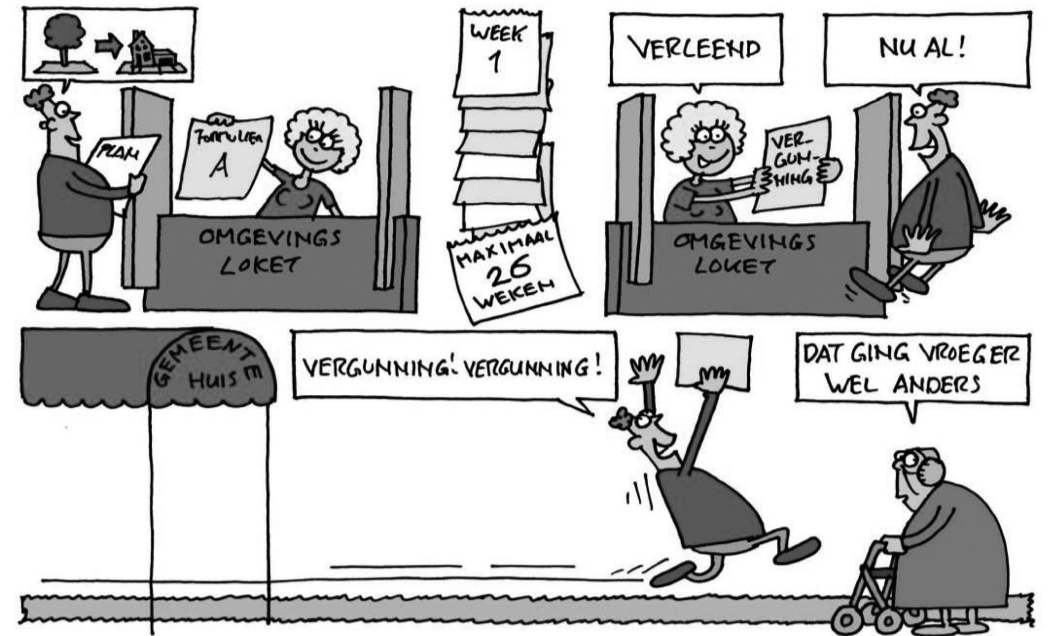 PLAN
FORMULIER
A
OMGEVINGS
LOKET
WEEK
1
MAXIMAAL
26
WEKEN
VERLEEND
NU AL!
VER-
GUN-
NING
OMGEVINGS
LOKET
GEMEENTE
HUIS
VERGUNNING! VERGUNNING!
DAT GING VROEGER
WEL ANDERS